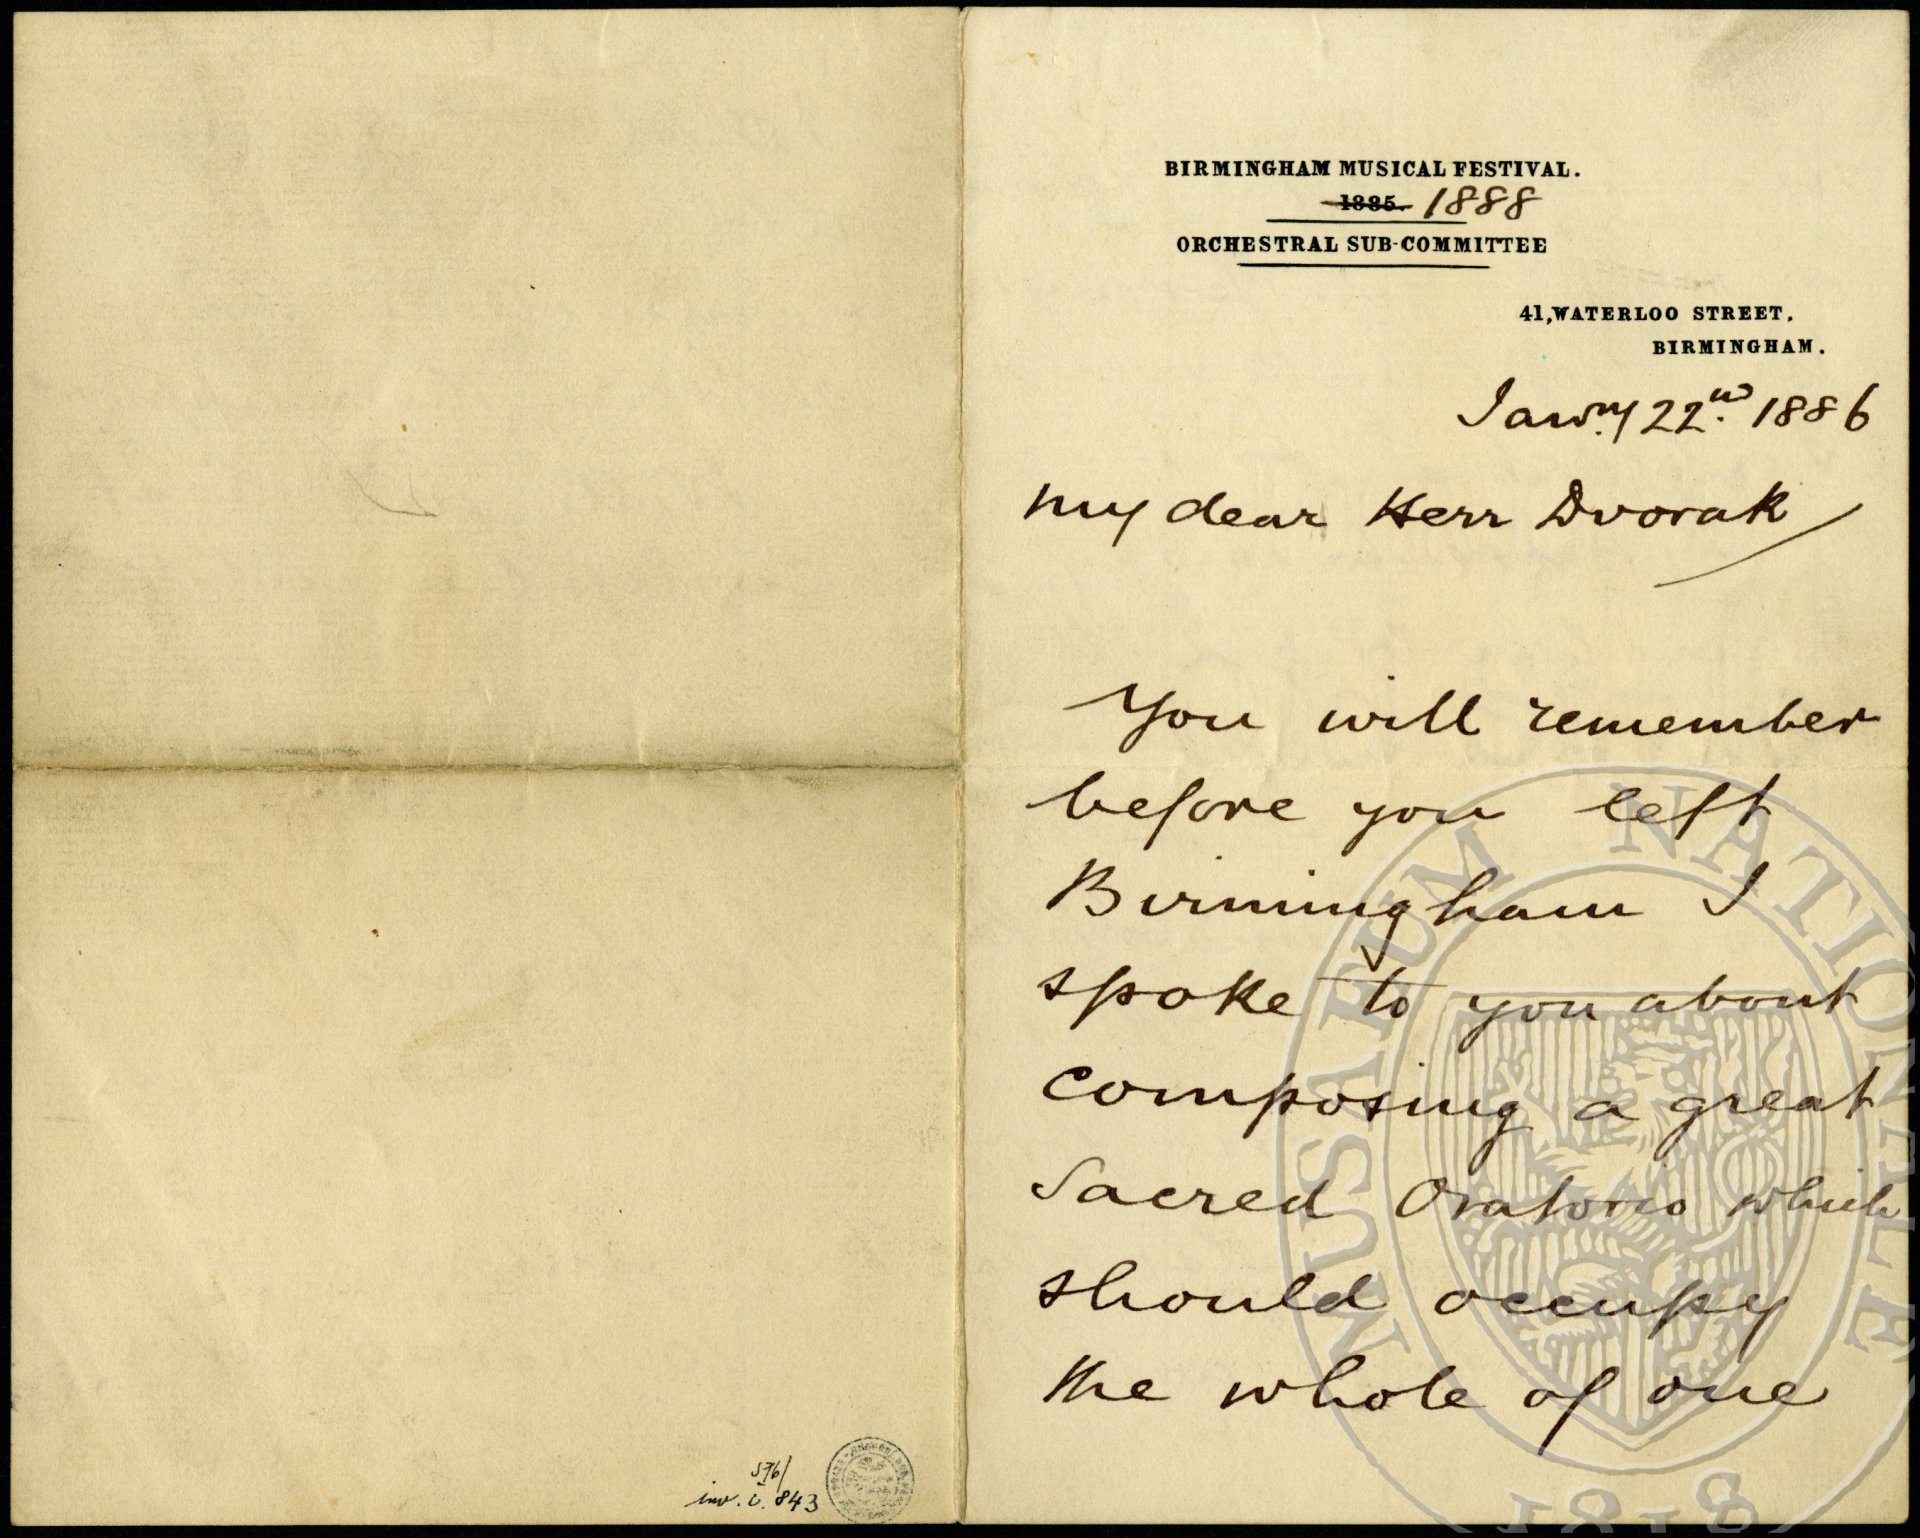 BIRMINGHAM MUSICAL FESTIVAL.
1885. 1888
ORCHESTRAL SUB-COMMITTEE
41, WATERLOO STREET,
BIRMINGHAM.
Janry 22nd 1886
My dear Herr Dvorak
You will remember
before you left
Birmingham I
spoke to you about
composing a great
Sacred Oratorio which
should occupy
the whole of one
inv. č. 843
MUSAEUM NATIONALE
1818